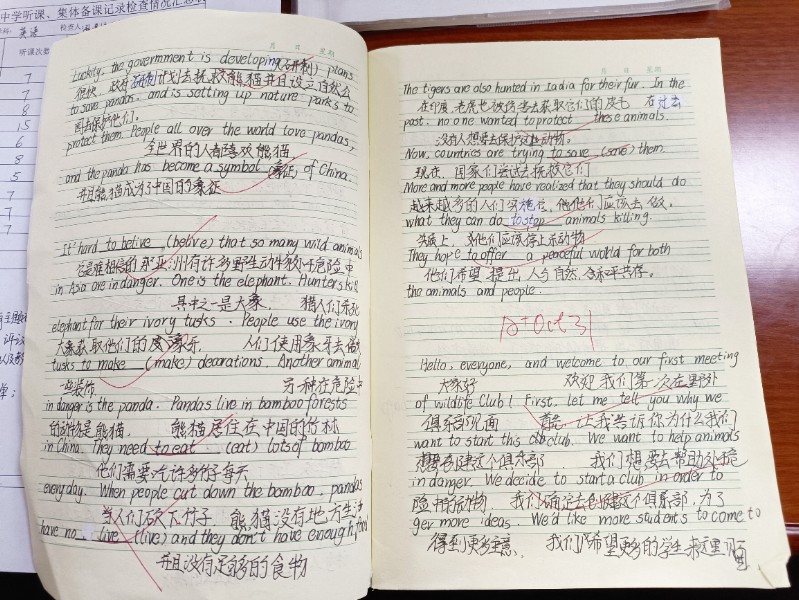 中学听课、集体备课记录检查情况汇总
英语
检查人
听课次数
7
7
8
15
6
8
5
7
7
7
月 日 星期
Luckily, the government is developing (研制) plans
很快，政府研制计划去拯救熊猫并且设立自然公
to save pandas. and is setting up nature parks to
园去保护他们。
protect them. People all over the world love pandas,
全世界的人都喜欢熊猫
and the panda has become a symbol (象征) of China.
并且熊猫成为了中国的象征
It's hard to belive (belive) that so many wild animals
它是难相信的那亚洲有许多野生动物处于危险中
in Asia are in danger. One is the elephant. Hunters kill
其中之一是大象， 猎人们杀死
elephant for their ivory tusks. People use the ivory
大象获取他们的象牙， 人们使用象牙去做
tusks to make (make) decorations. Another animal
一些装饰 另一种在危险中
in danger is the panda. Pandas live in bamboo forests
的动物是熊猫， 熊猫居住在中国的竹林
in China. They need to eat (eat) lots of bamboo
他们需要吃许多竹子每天
every day. When people cut down the bamboo, pandas
当人们砍下竹子 熊猫没有地方生活
have no live (live) and they don't have enough food
并且没有足够的食物
月 日 星期
The tigers are also hunted in India for their fur. In the
在印度，老虎也被伤害去获取它们的皮毛 在过去
past, no one wanted to protect these animals.
没有人想要去保护这些动物。
Now, countries are trying to save (save) them.
现在， 国家们尝试去拯救它们
More and more people have realized that they should do
越来越多的人们 他们应该去做。
what they can do to stop animals killing.
They hope to offer a peaceful world for both
他们希望 提出，人与自然，和平共存。
the animals and people.
A+ Oct 31
Hello, everyone, and welcome to our first meeting
大家好 欢迎我们第一次在野外
of wildlife Club! First, let me tell you why we
俱乐部见面 首先 让我告诉你为什么我们
want to start this club. We want to help animals
想要创建这个俱乐部， 我们想要去帮助处于危
in danger. We decide to start a club in order to
险中的动物， 我们确定去创建这个俱乐部，为了
ger more ideas. We'd like more students to come to
得到更多主意， 我们希望更多的学生来这里